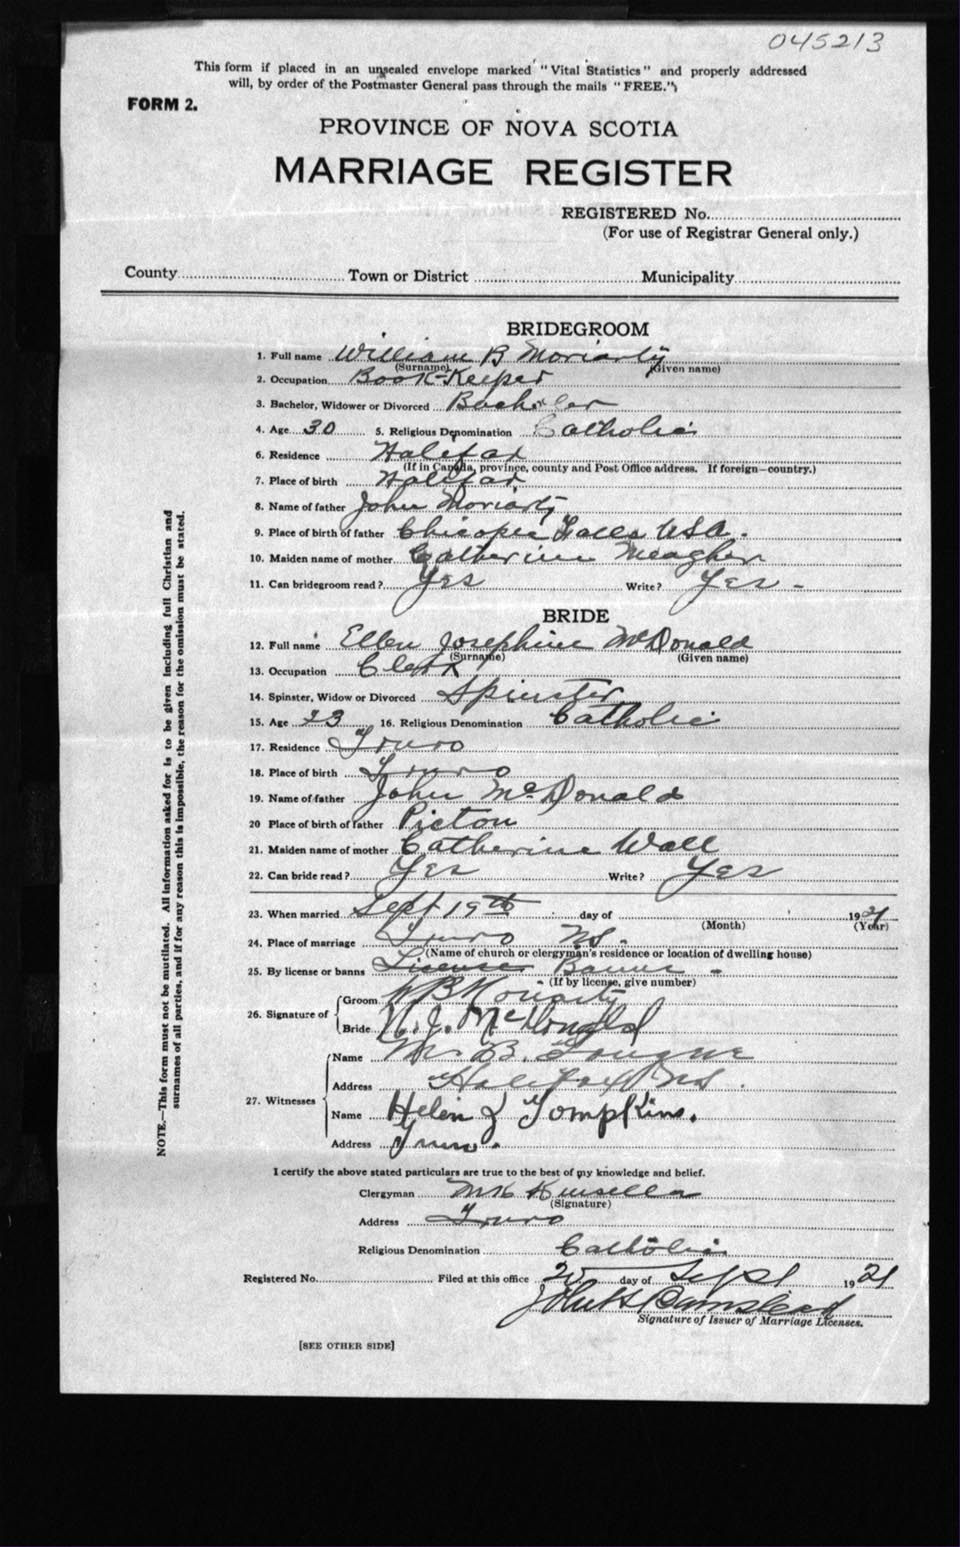 045213
This form if placed in an unsealed envelope marked "Vital Statistics" and properly addressed
will, by order of the Postmaster General pass through the mails "FREE."
FORM 2.
PROVINCE OF NOVA SCOTIA
MARRIAGE REGISTER
REGISTERED No.
(For use of Registrar General only.)
County Town or District Municipality
BRIDEGROOM
1. Full name William B Moriarty
(Surname) (Given name)
2. Occupation Book-Keeper
3. Bachelor, Widower or Divorced Bachelor
4. Age 30 5. Religious Denomination Catholic
6. Residence Halifax
(If in Canada, province, county and Post Office address. If foreign—country.)
7. Place of birth Halifax
8. Name of father John Moriarty
9. Place of birth of father Chicopee Falls USA.
10. Maiden name of mother Catherine Meagher
11. Can bridegroom read? Yes Write? Yes -
BRIDE
12. Full name Ellen Josephine McDonald
(Surname) (Given name)
13. Occupation Clerk
14. Spinster, Widow or Divorced Spinster
15. Age 23 16. Religious Denomination Catholic
17. Residence Truro
18. Place of birth Truro
19. Name of father John McDonald
20 Place of birth of father Pictou
21. Maiden name of mother Catherine Wall
22. Can bride read? Yes Write? Yes
23. When married Sept 19th day of 1921
(Month) (Year)
24. Place of marriage Truro NS.
(Name of church or clergyman's residence or location of dwelling house)
25. By license or banns License Banns -
(If by license, give number)
26. Signature of Groom W B Moriarty
Bride N. J. McDonald
27. Witnesses
Name B.
Address Halifax NS.
Name Helen J Tompkins.
Address Truro.
I certify the above stated particulars are true to the best of my knowledge and belief.
Clergyman Kinsella
(Signature)
Address Truro
Religious Denomination Catholic
Registered No. Filed at this office 20 day of Sept 1921
John H Barnstead
Signature of Issuer of Marriage Licenses.
[SEE OTHER SIDE]
NOTE.—This form must not be mutilated. All information asked for is to be given including full Christian and
surnames of all parties, and if for any reason this is impossible, the reason for the omission must be stated.